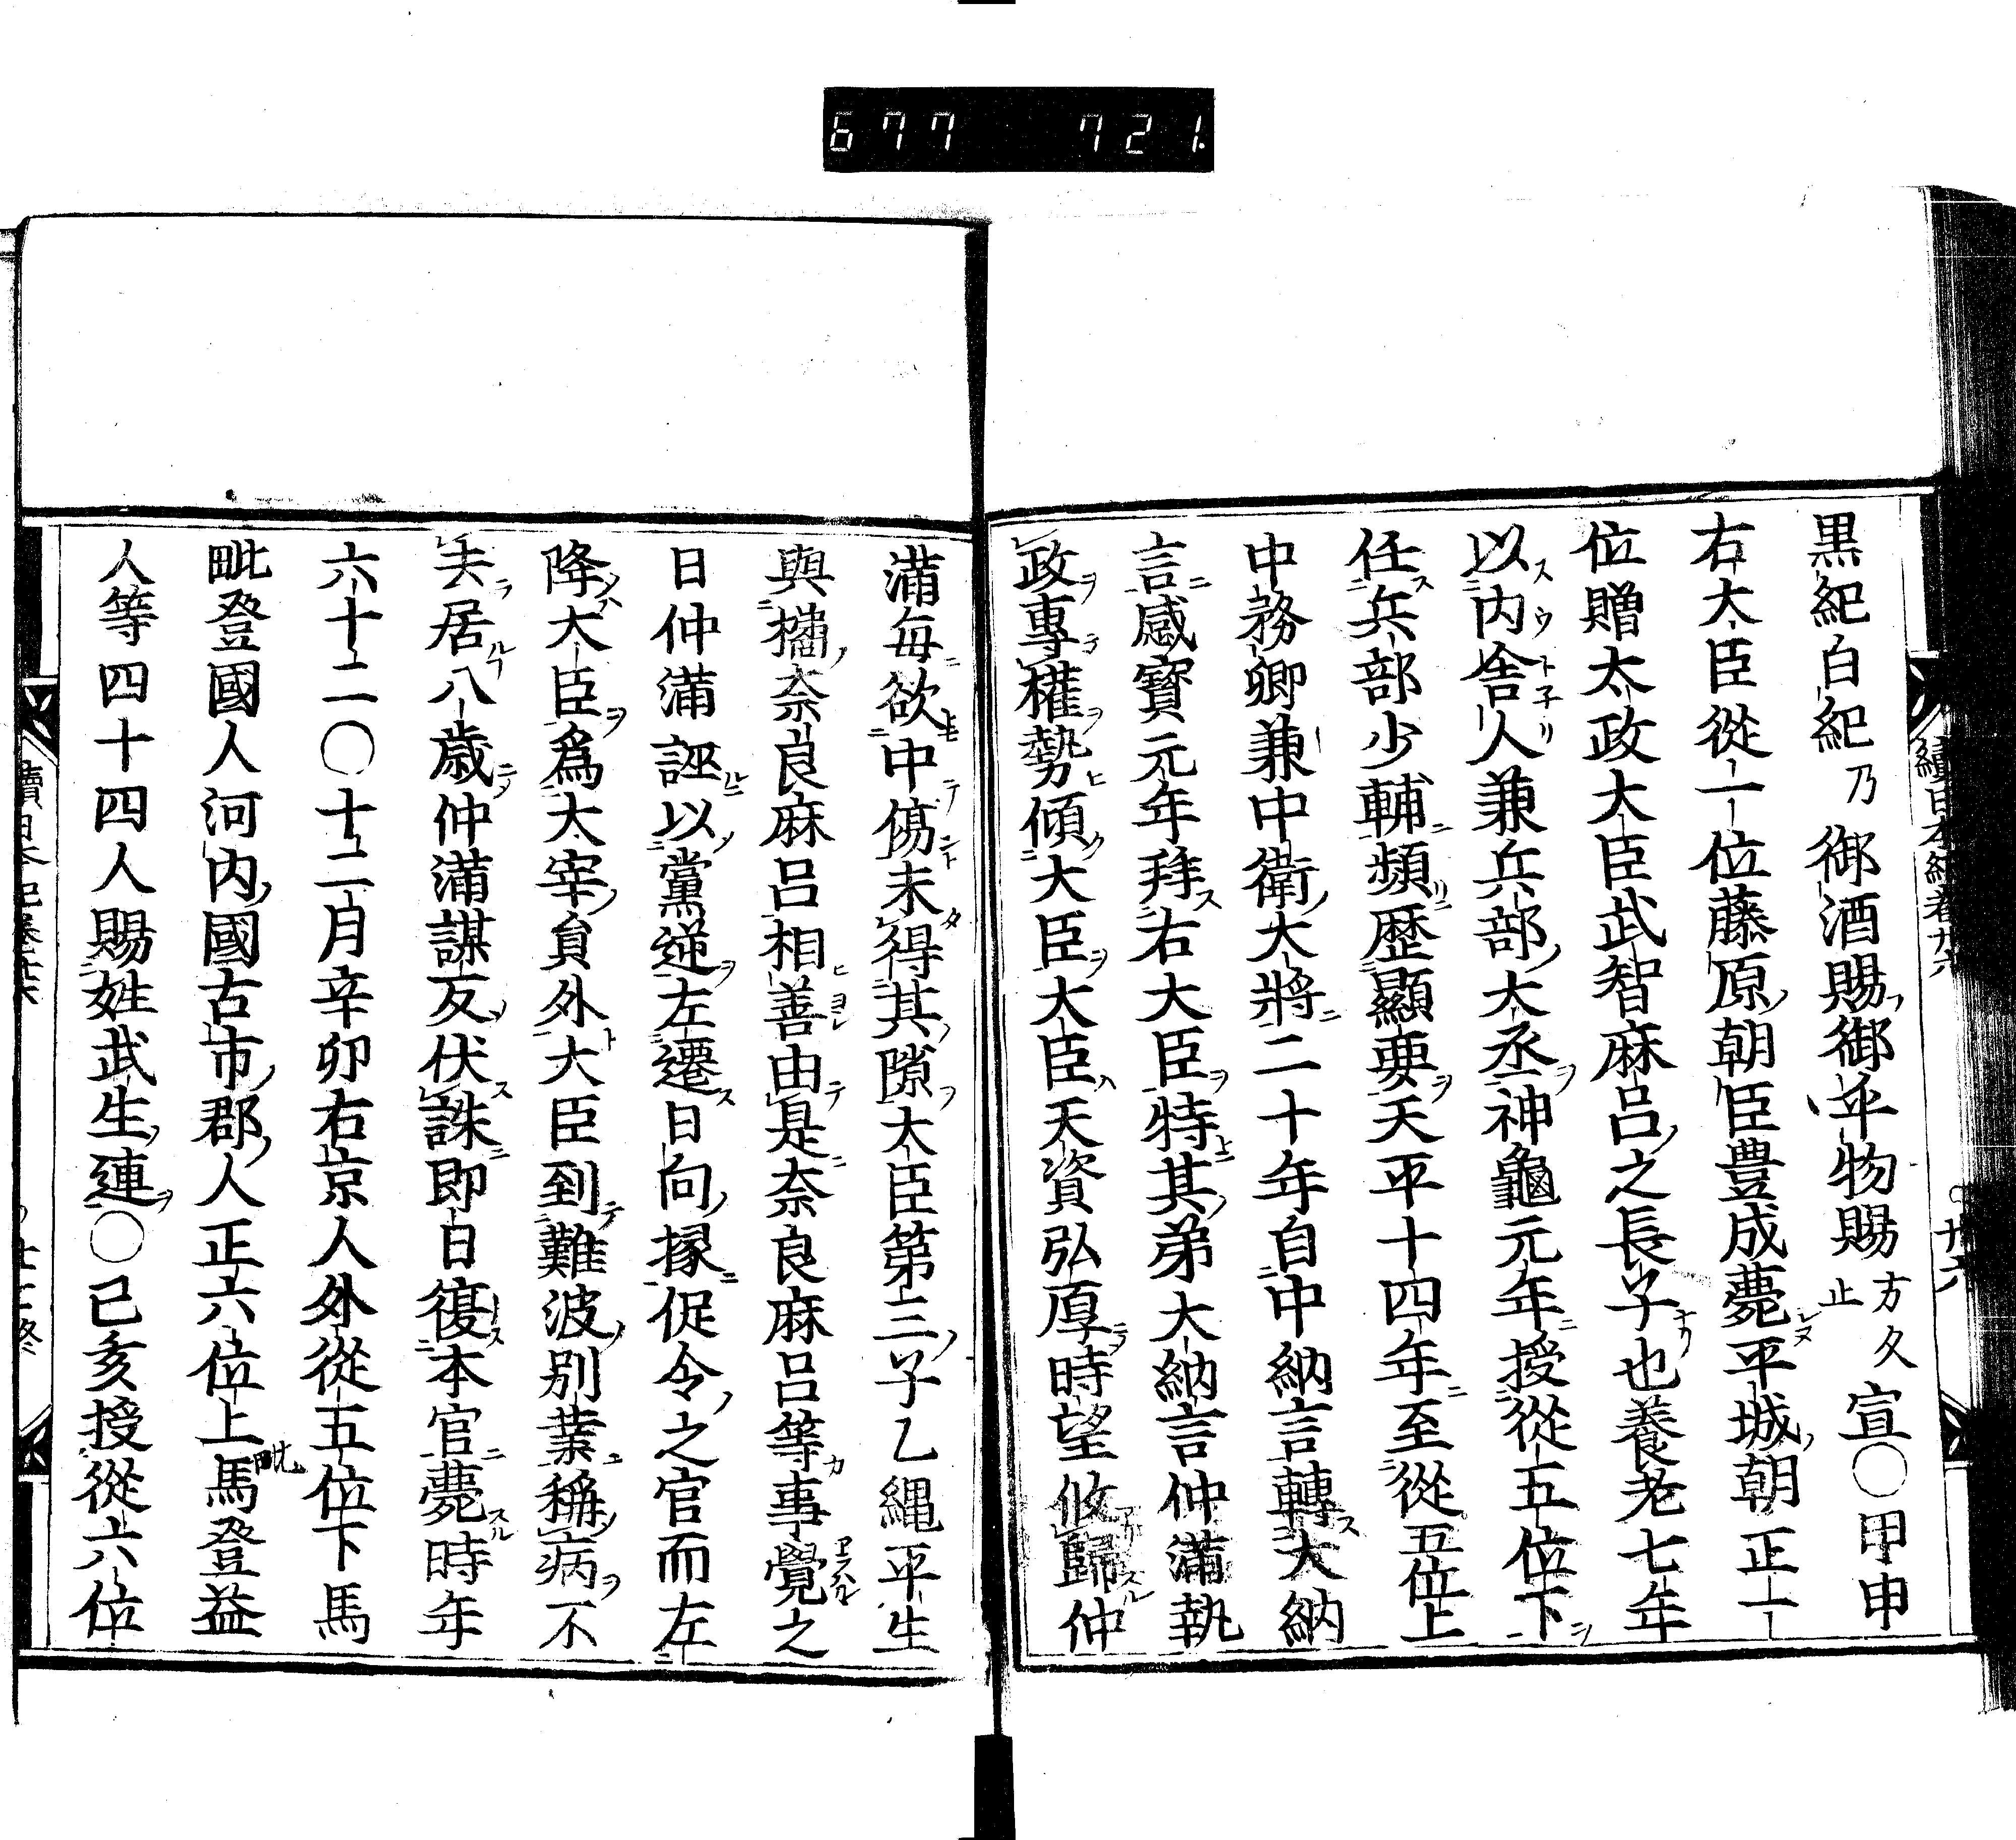 677 721.
黒紀白紀乃御酒賜御乎物賜方久止宣〇甲申
右大臣從一位藤原朝臣豊成薨平城朝正一
位贈太政大臣武智麻呂之長子也養老七年
以内舎人兼兵部大丞神龜元年授從五位下
任兵部少輔頻歴顯要天平十四年至從五位上
中務卿兼中衛大將二十年自中納言轉大納
言感寶元年拜右大臣特其弟大納言仲滿執
政專權勢傾大臣大臣天資弘厚時望攸歸仲
滿毎欲中傷未得其隙大臣第三子乙縄平生
與橘奈良麻呂相善由是奈良麻呂等事覺之
日仲滿誣以黨逆左遷日向掾促令之官而左
降大臣爲大宰負外大臣到難波別業稱病不
去居八歳仲滿謀反伏誅即日復本官薨時年
六十二〇十二月辛卯右京人外從五位下馬
毗登國人河内國古市郡人正六位上馬毗登益
人等四十四人賜姓武生連〇己亥授從六位